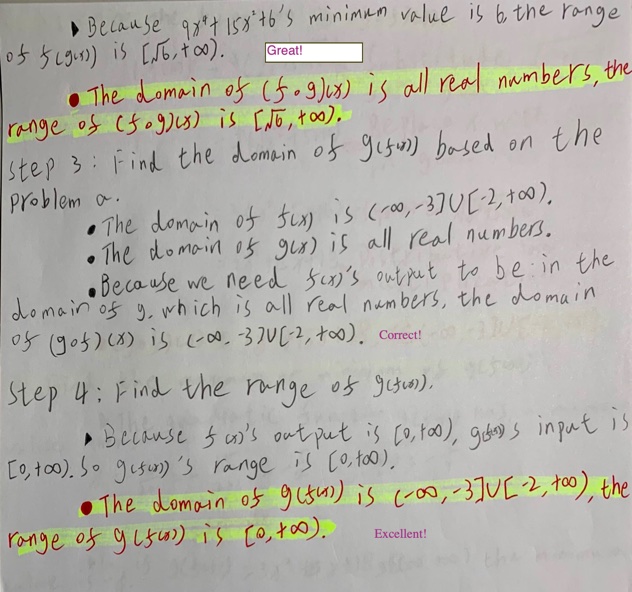 ▶ Because 9x⁴+15x²+6's minimum value is 6, the range
of f(g(x)) is [√6,+∞). Great!
• The domain of (f∘g)(x) is all real numbers, the
range of (f∘g)(x) is [√6,+∞).
Step 3: Find the domain of g(f(x)) based on the
problem a.
• The domain of f(x) is (-∞,-3]∪[-2,+∞).
• The domain of g(x) is all real numbers.
• Because we need f(x)'s output to be in the
domain of g, which is all real numbers, the domain
of (g∘f)(x) is (-∞,-3]∪[-2,+∞). Correct!
Step 4: Find the range of g(f(x)).
▶ Because f(x)'s output is [0,+∞), g(f(x))'s input is
[0,+∞). So g(f(x))'s range is [0,+∞).
• The domain of g(f(x)) is (-∞,-3]∪[-2,+∞), the
range of g(f(x)) is [0,+∞). Excellent!